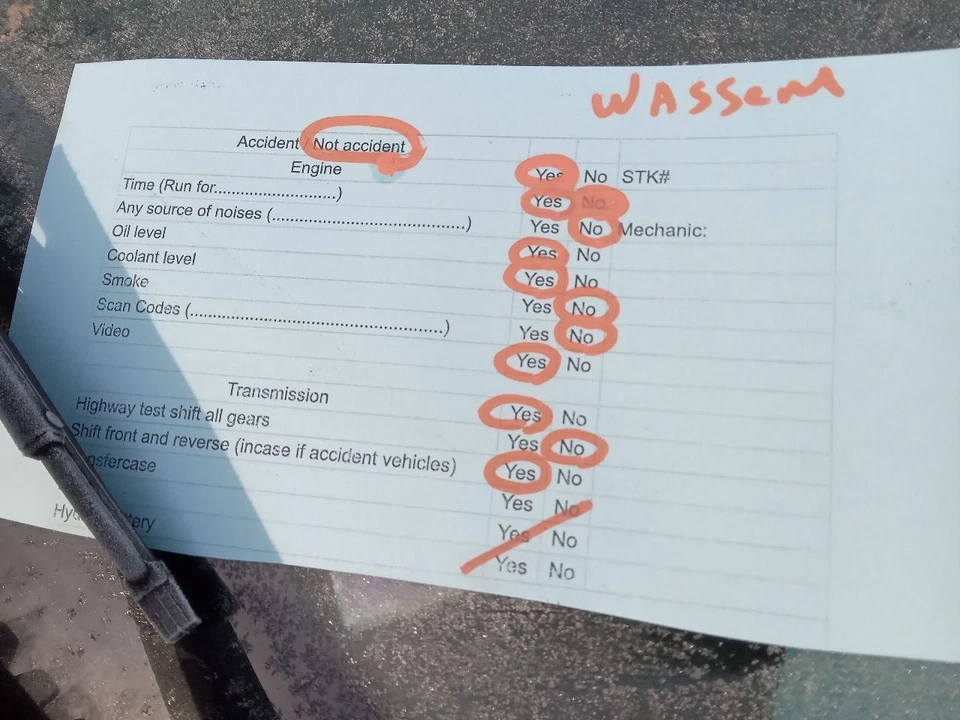 WASSEM
Accident / Not accident
Engine Yes No STK#
Time (Run for..............................) Yes No
Any source of noises (.................................................) Yes No Mechanic:
Oil level Yes No
Coolant level Yes No
Smoke Yes No
Scan Codes (................................................................) Yes No
Video Yes No
Transmission
Highway test shift all gears Yes No
Shift front and reverse (incase if accident vehicles) Yes No
Yes No
Yes No
Yes No
Yes No